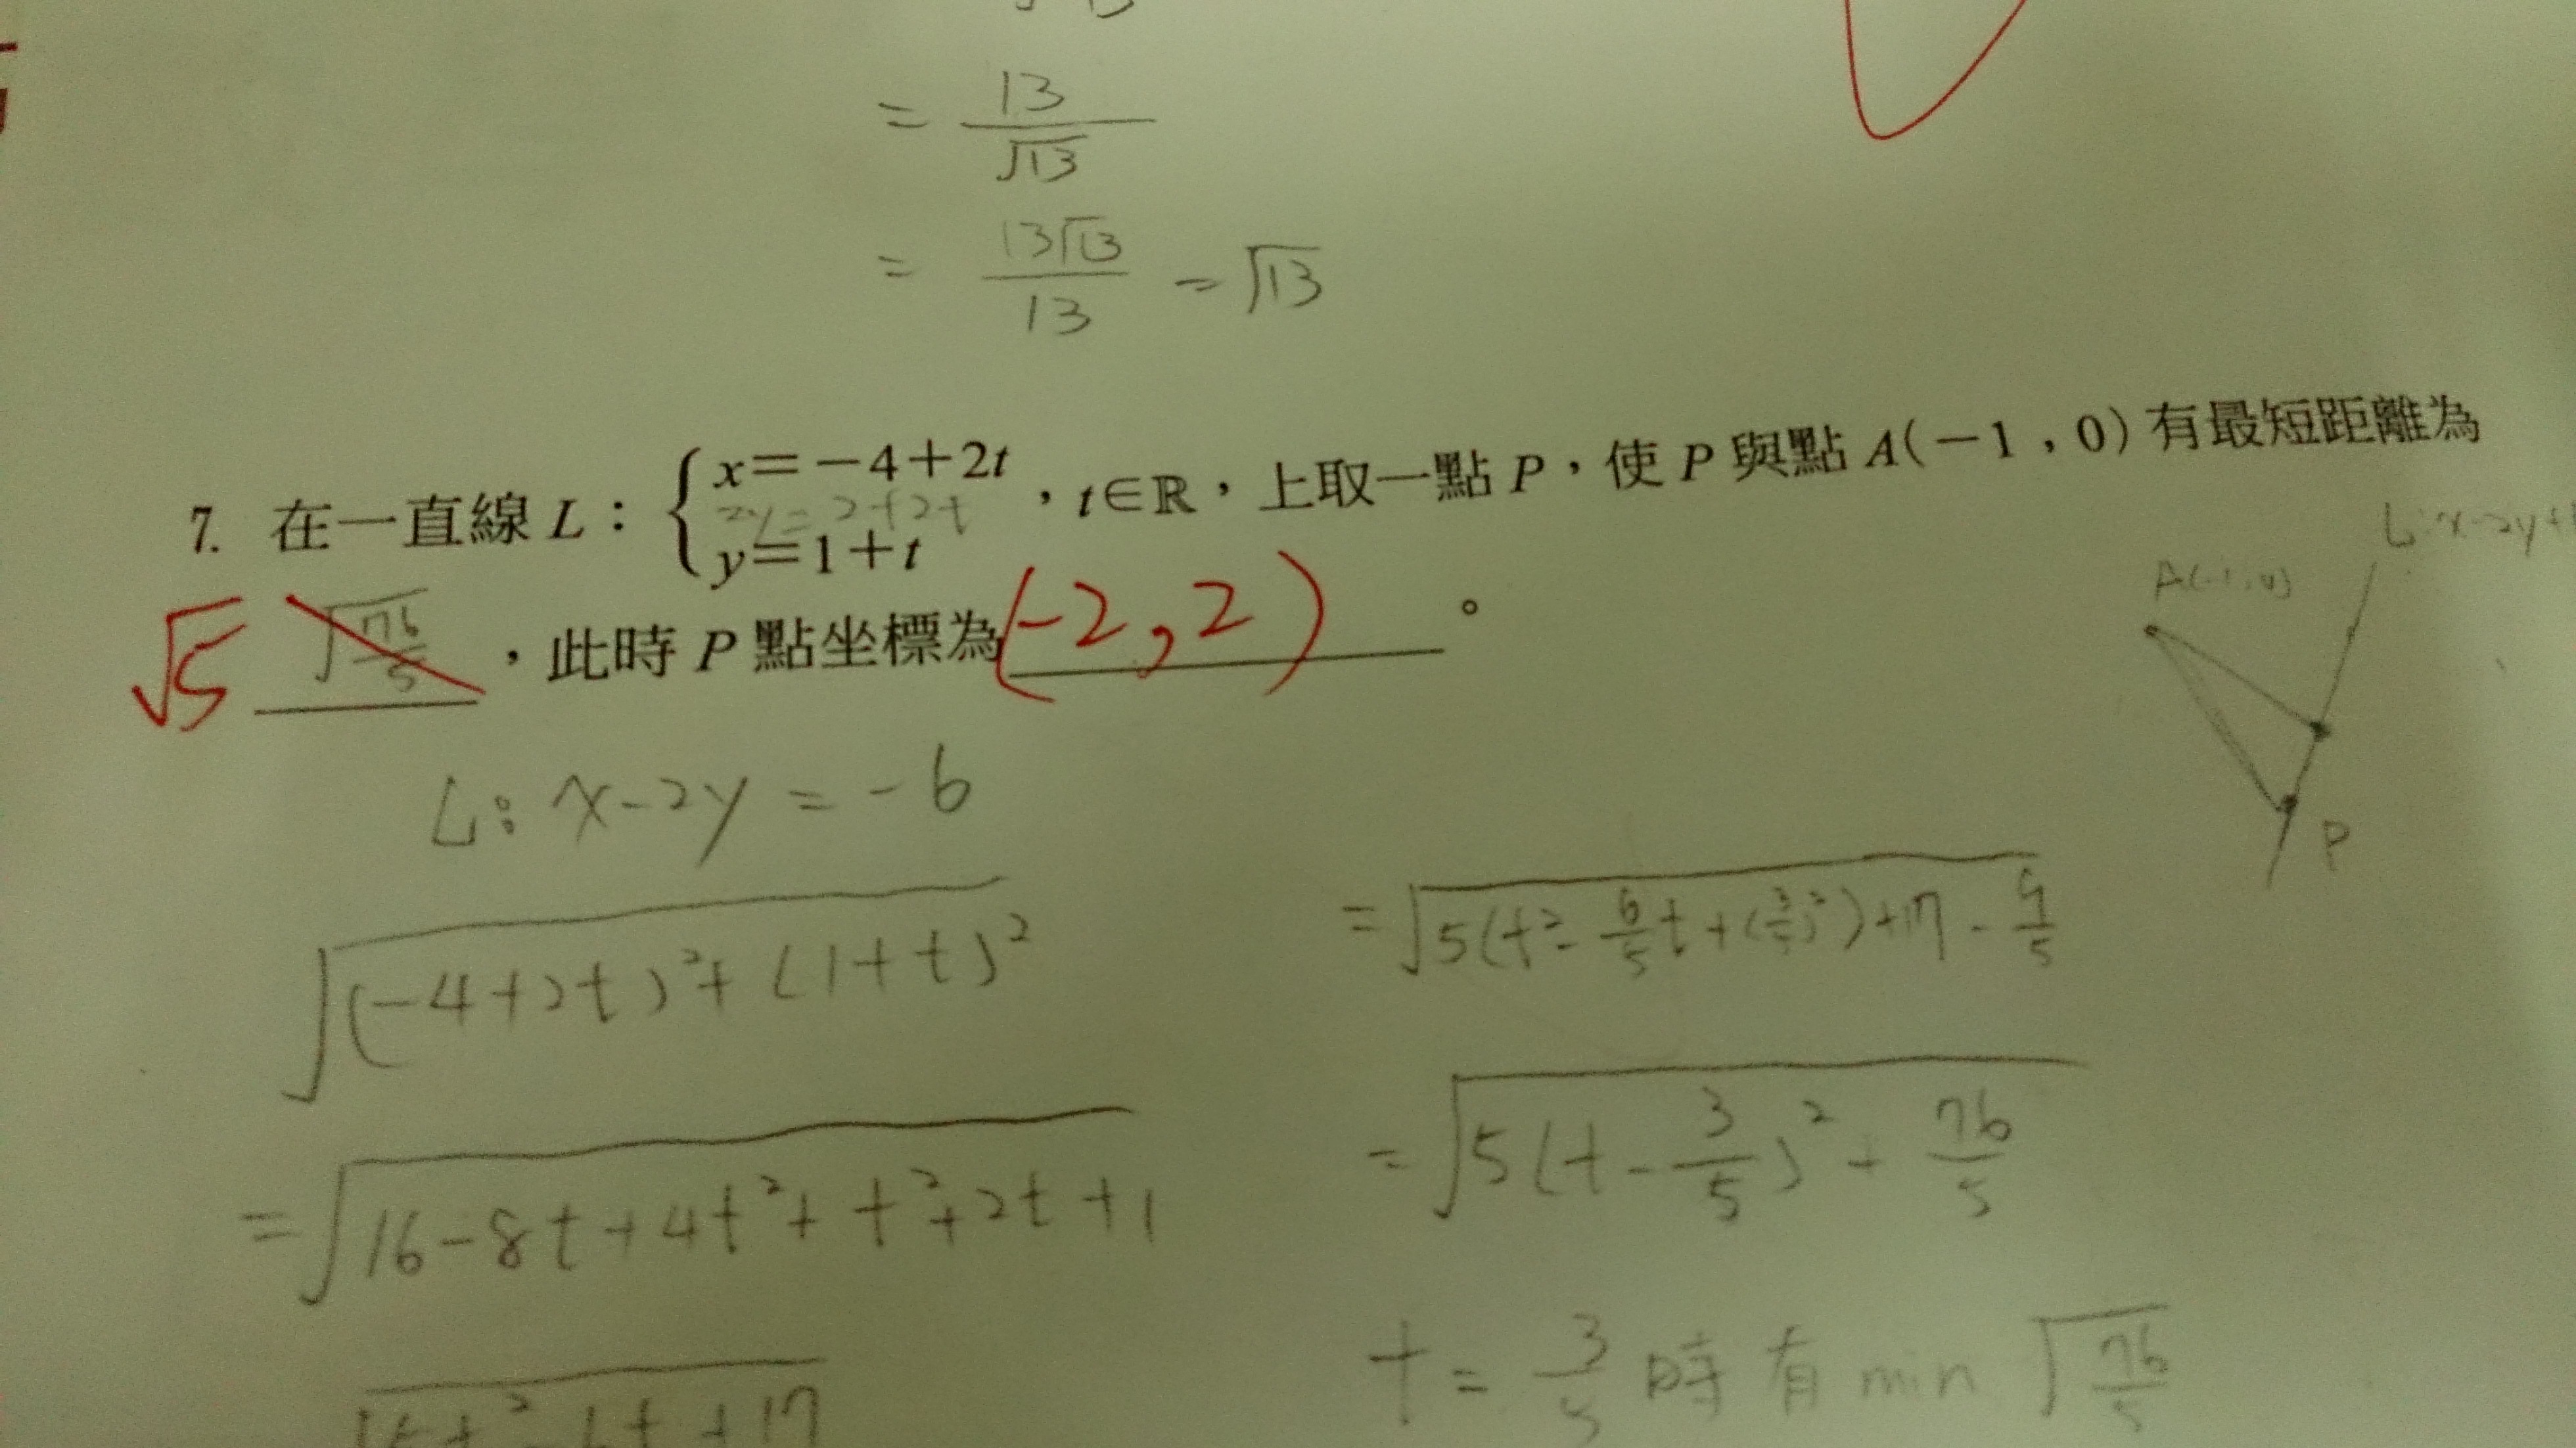 = 13/√13
= 13√13/13 = √13
7. 在一直線 L：{x=−4+2t
2y=2+2t
y=1+t ，t∈ℝ，上取一點 P，使 P 與點 A(−1，0) 有最短距離為
√5 √(76/5) ，此時 P 點坐標為 (−2，2) 。
L: x−2y
A(-1,0)
P
L: x−2y = −6
√((−4+2t)²+(1+t)²)
= √(16−8t+4t²+t²+2t+1)
√(5t²−6t+17)
= √(5(t²−6/5t+(3/5)²)+17−9/5)
= √(5(t−3/5)²+76/5)
t = 3/5 時有 min √(76/5)